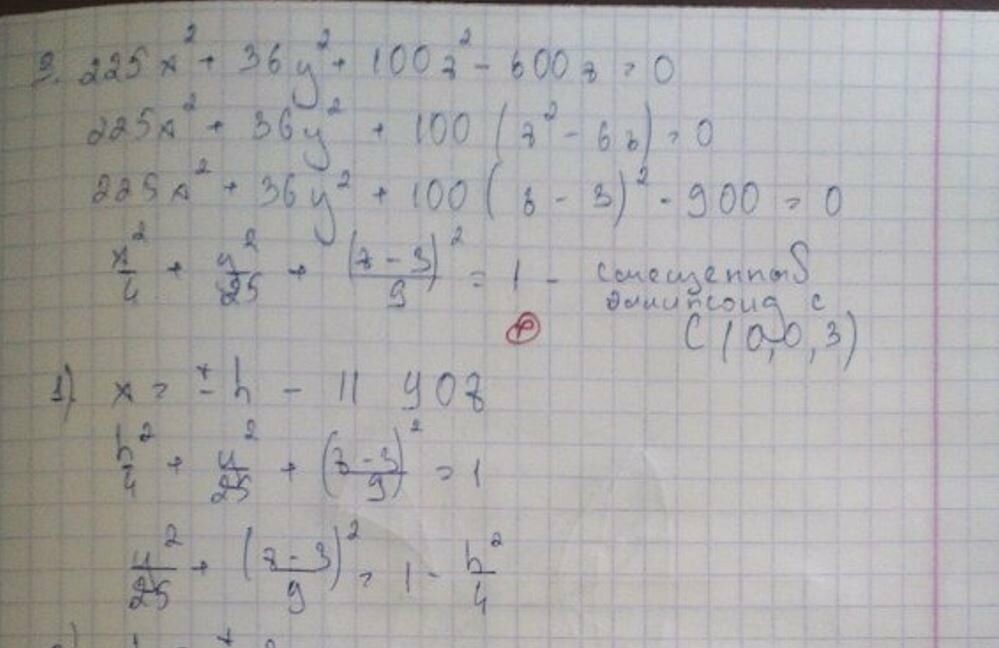 3. 225x² + 36y² + 100z² - 600z = 0
225x² + 36y² + 100(z² - 6z) = 0
225x² + 36y² + 100(z - 3)² - 900 = 0
x²/4 + y²/25 + (z - 3)²/9 = 1 - смещенный
эллипсоид с
C (0,0,3)
1) x = ± h - || y0z
h²/4 + y²/25 + (z - 3)²/9 = 1
y²/25 + (z - 3)²/9 = 1 - h²/4